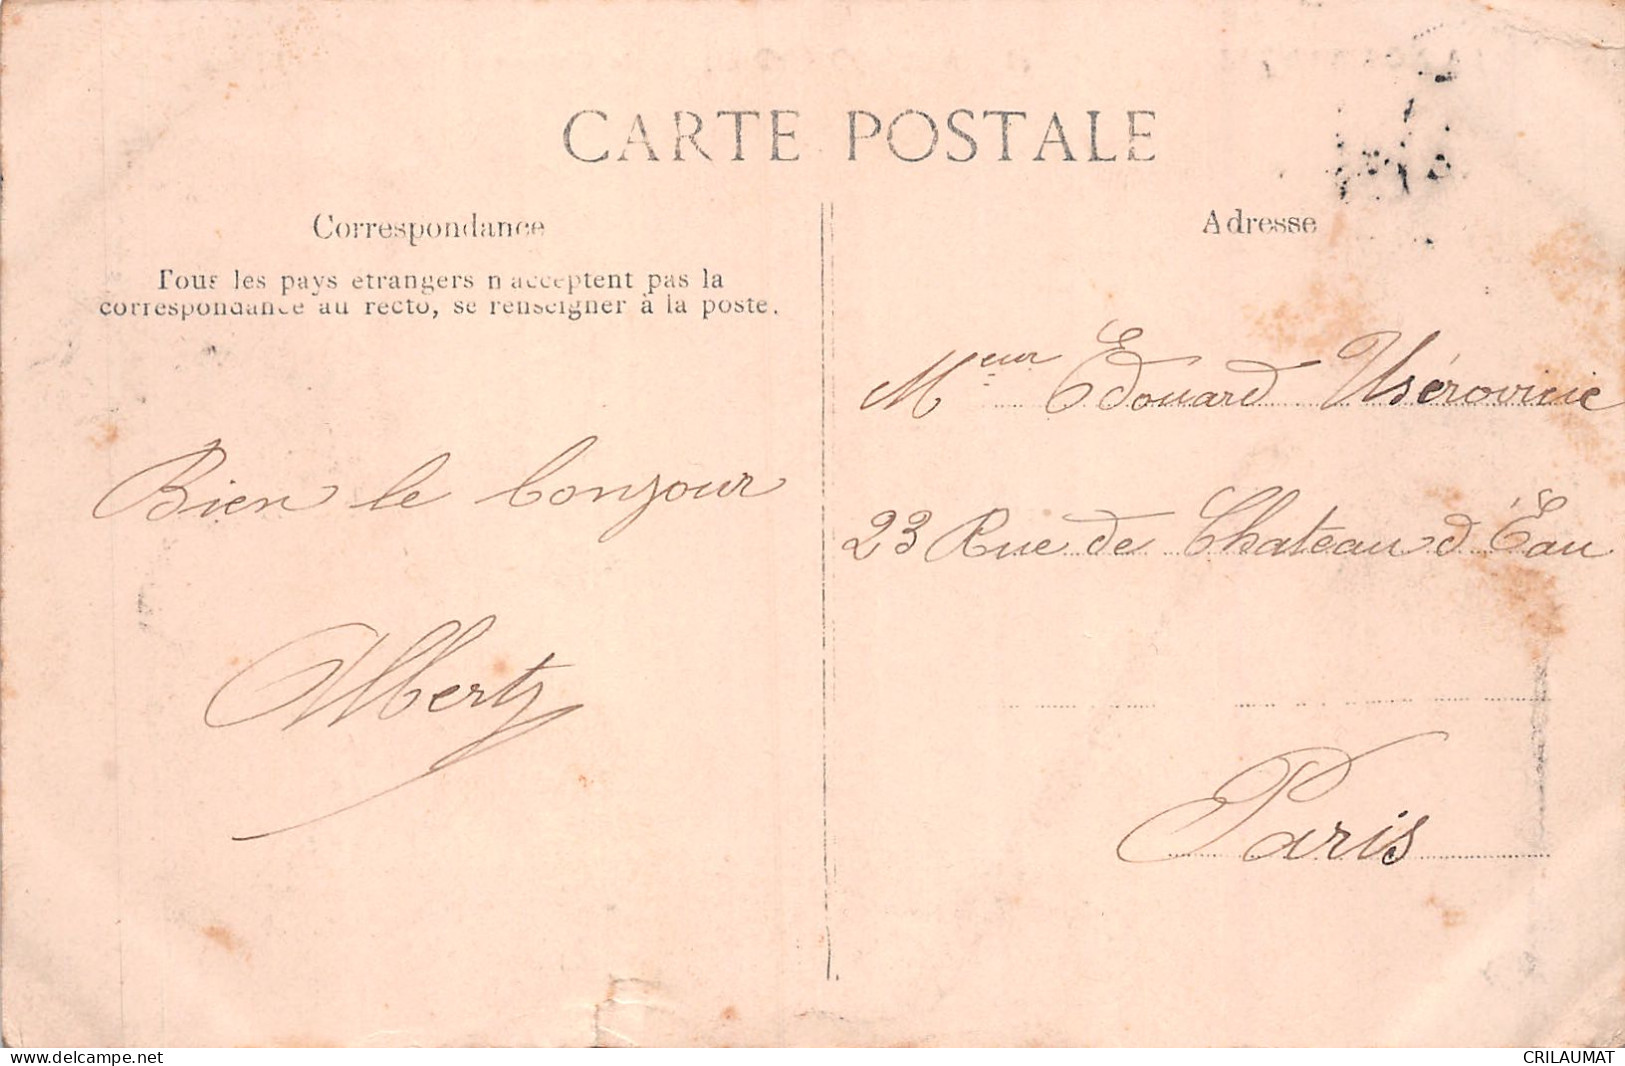 CARTE POSTALE
Correspondance
Tous les pays etrangers n'acceptent pas la
correspondance au recto, se renseigner à la poste.
Bien le bonjour
Albert
Adresse
Mr Edouard
23 Rue de Chateau d'Eau
Paris
www.delcampe.net
CRILAUMAT